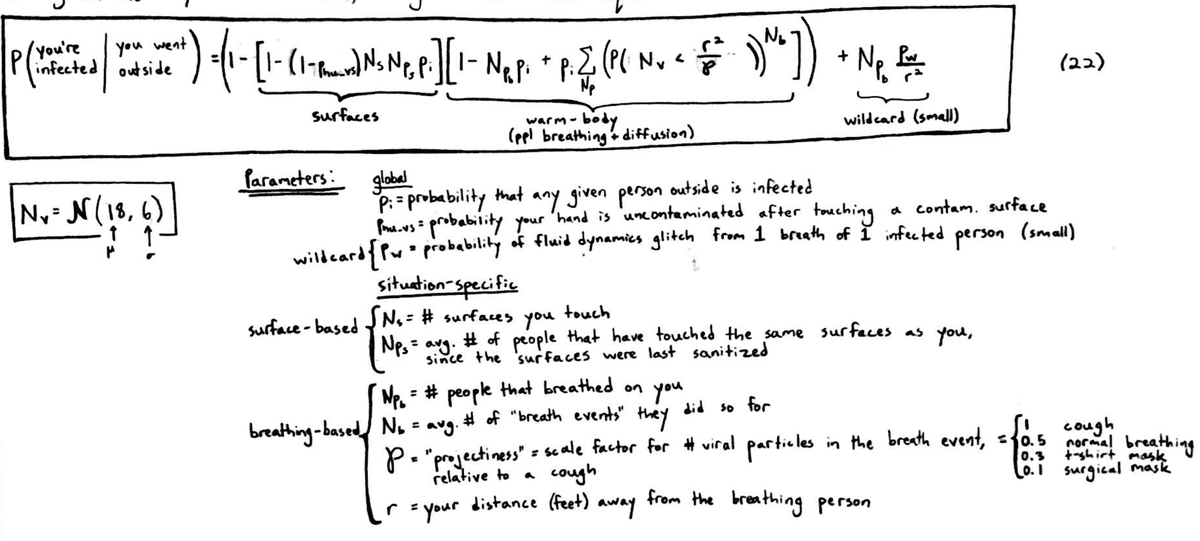 P(you're infected | you went outside) = (1 - [1 - (1 - Phu_vs) Ns Nps Pi][1 - Npb Pi + Pi Σ Np (P(Nv < r²/℘))^Nb]) + Npb Pw/r² (22)
surfaces
warm-body
(ppl breathing + diffusion)
wildcard (small)
Nv = N(18, 6)
μ σ
Parameters:
global
Pi = probability that any given person outside is infected
Phu_vs = probability your hand is uncontaminated after touching a contam. surface
wildcard { Pw = probability of fluid dynamics glitch from 1 breath of 1 infected person (small)
situation-specific
surface-based { Ns = # surfaces you touch
Nps = avg. # of people that have touched the same surfaces as you,
since the surfaces were last sanitized
breathing-based { Npb = # people that breathed on you
Nb = avg. # of "breath events" they did so for
℘ = "projectiness" = scale factor for # viral particles in the breath event, = { 1 cough
relative to a cough
0.5 normal breathing
0.3 t-shirt mask
0.1 surgical mask
r = your distance (feet) away from the breathing person